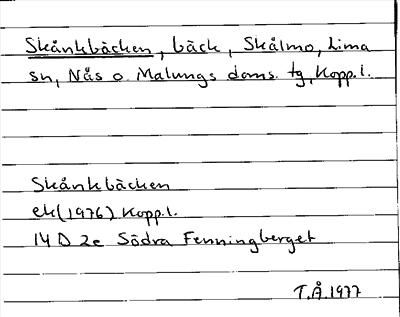 Skånkbäcken, bäck, Skålmo, Lima
sn, Nås o. Malungs doms. tg, Kopp. l.
Skånkbäcken
ek (1976) Kopp. l.
14 D 2e Södra Fenningberget
T.Å. 1977